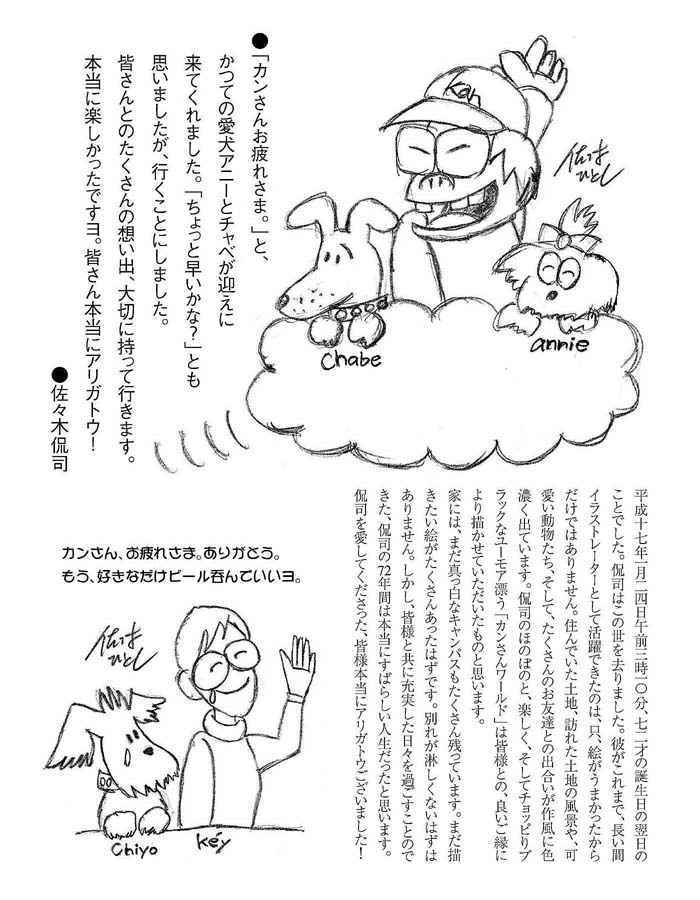 ●「カンさんお疲れさま。」と、
かつての愛犬アニーとチャベが迎えに
来てくれました。「ちょっと早いかな?」とも
思いましたが、行くことにしました。
皆さんとのたくさんの想い出、大切に持って行きます。
本当に楽しかったですヨ。皆さん本当にアリガトウ!
●佐々木侃司
Kan
Chabe
annie
平成十七年一月二四日午前三時一〇分、七二才の誕生日の翌日の
ことでした。侃司はこの世を去りました。彼がこれまで、長い間
イラストレーターとして活躍できたのは、只、絵がうまかったから
だけではありません。住んでいた土地、訪れた土地の風景や、可
愛い動物たち、そして、たくさんのお友達との出合いが作風に色
濃く出ています。侃司のほのぼのと、楽しく、そしてチョッピリブ
ラックなユーモア漂う「カンさんワールド」は皆様との、良いご縁に
より描かせていただいたものと思います。
家には、まだ真っ白なキャンバスもたくさん残っています。まだ描
きたい絵がたくさんあったはずです。別れが淋しくないはずは
ありません。しかし、皆様と共に充実した日々を過ごすことので
きた、侃司の72年間は本当にすばらしい人生だったと思います。
侃司を愛してくださった、皆様本当にアリガトウございました!
カンさん、お疲れさま。ありがとう。
もう、好きなだけビール呑んでいいヨ。
Chiyo
kéy